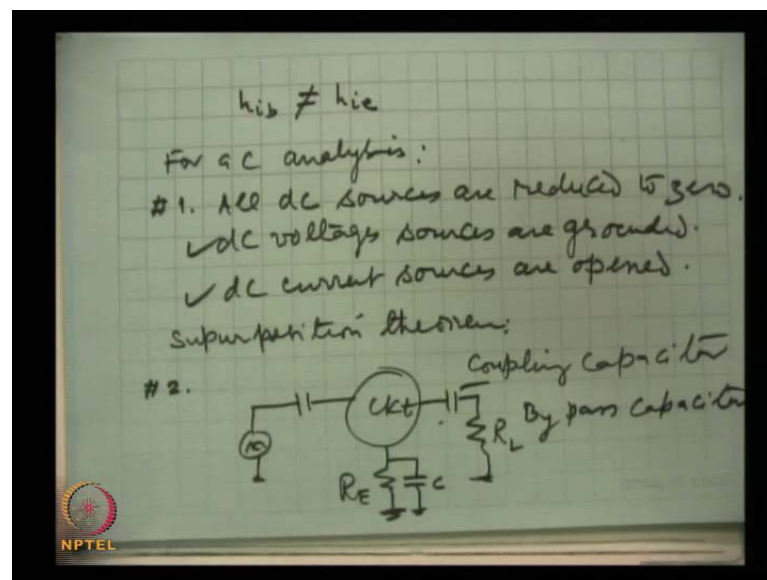 hib ≠ hie
For ac analysis:
#1. All dc sources are reduced to zero.
✓dc voltages sources are grounded.
✓dc current sources are opened.
Superposition theorem:
#2.
Coupling Capacitor
By pass capacitor
Ckt
ac
RL
RE
C
NPTEL